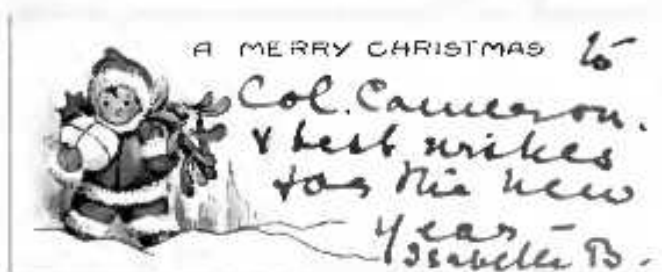 A MERRY CHRISTMAS to
Col. Cameron.
& best wishes
for the new
Year -
Isabella B.